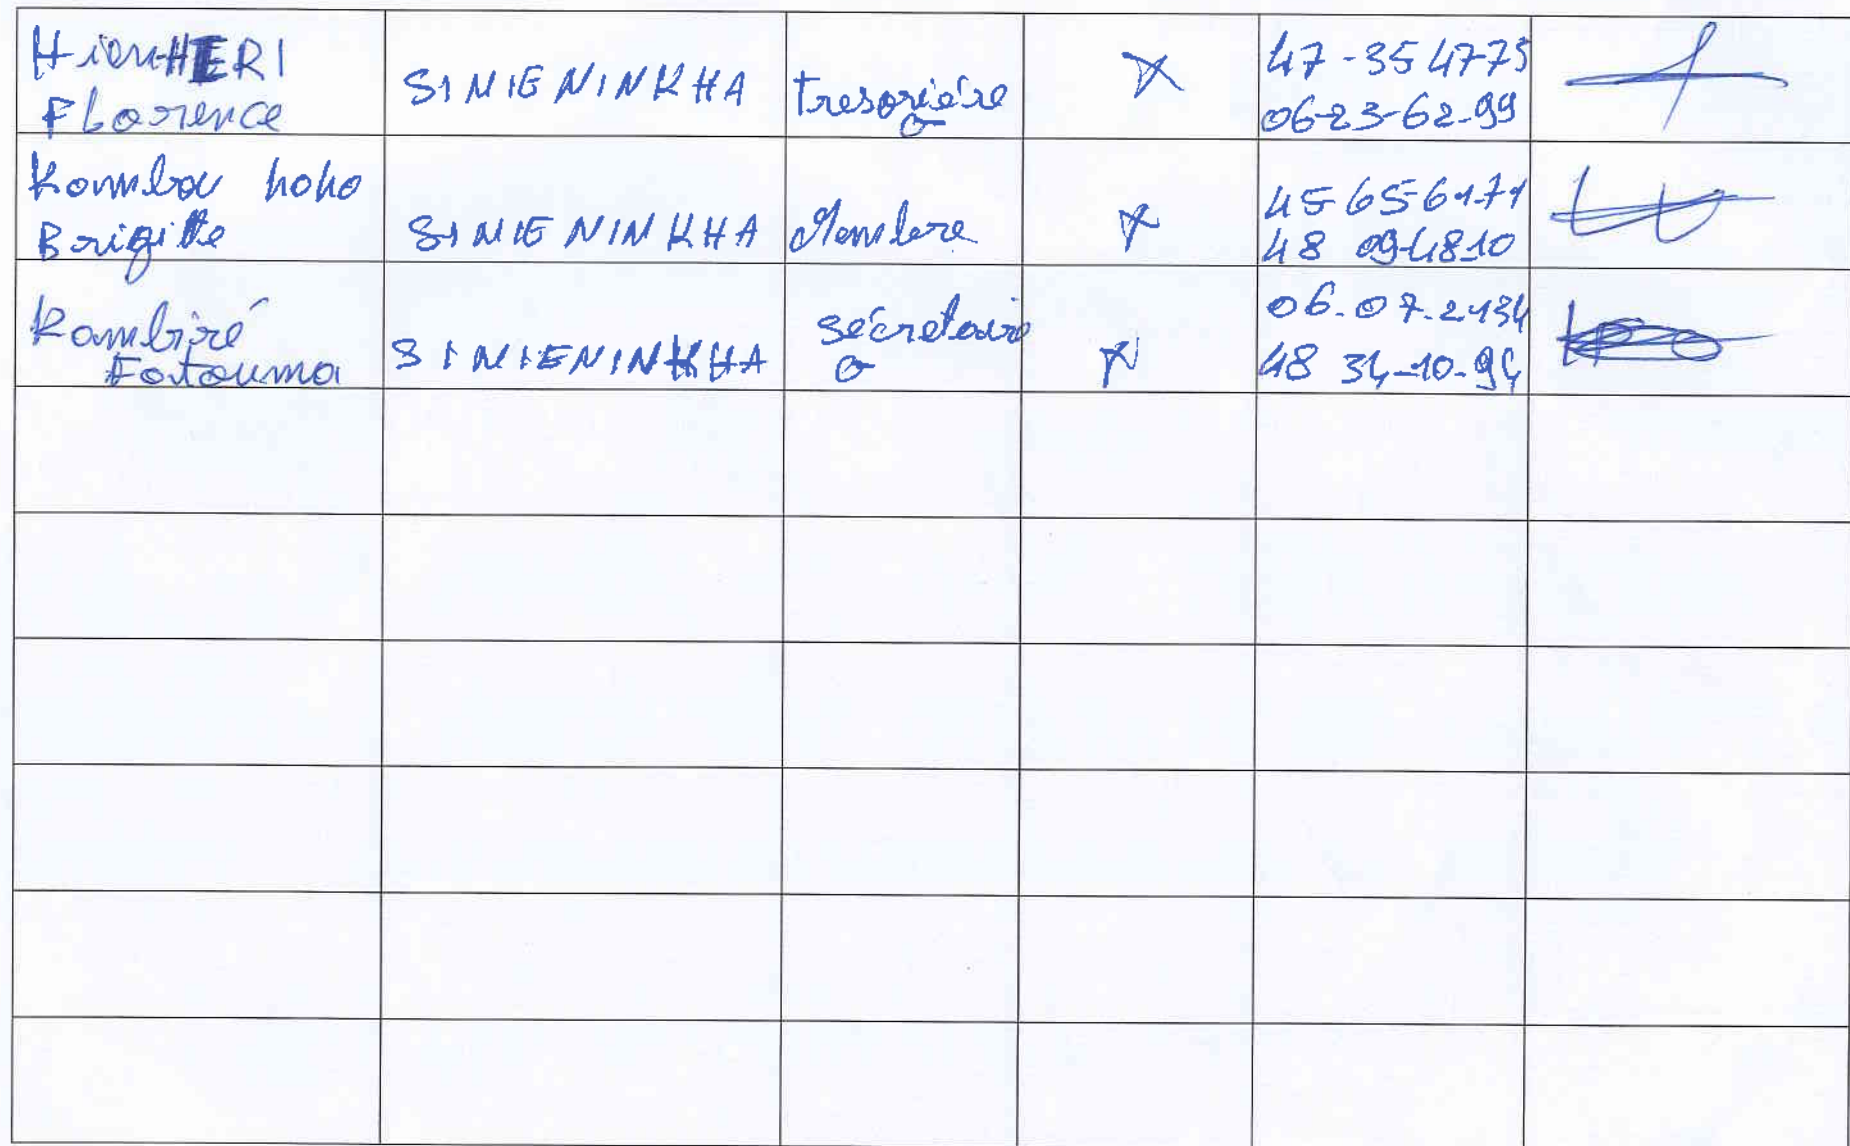 HienHERI
Florence
SINIENINKHA
tresorière
X
47-35 47-75
06-23-62-99
hoho
Brigitte
SINIENINKHA
Membre
X
45-65-61-71
48 09-48-10
Kambiré
Fatouma
SINIENINKHA
sécretaire
X
06-07-21-34
48 34-10-94